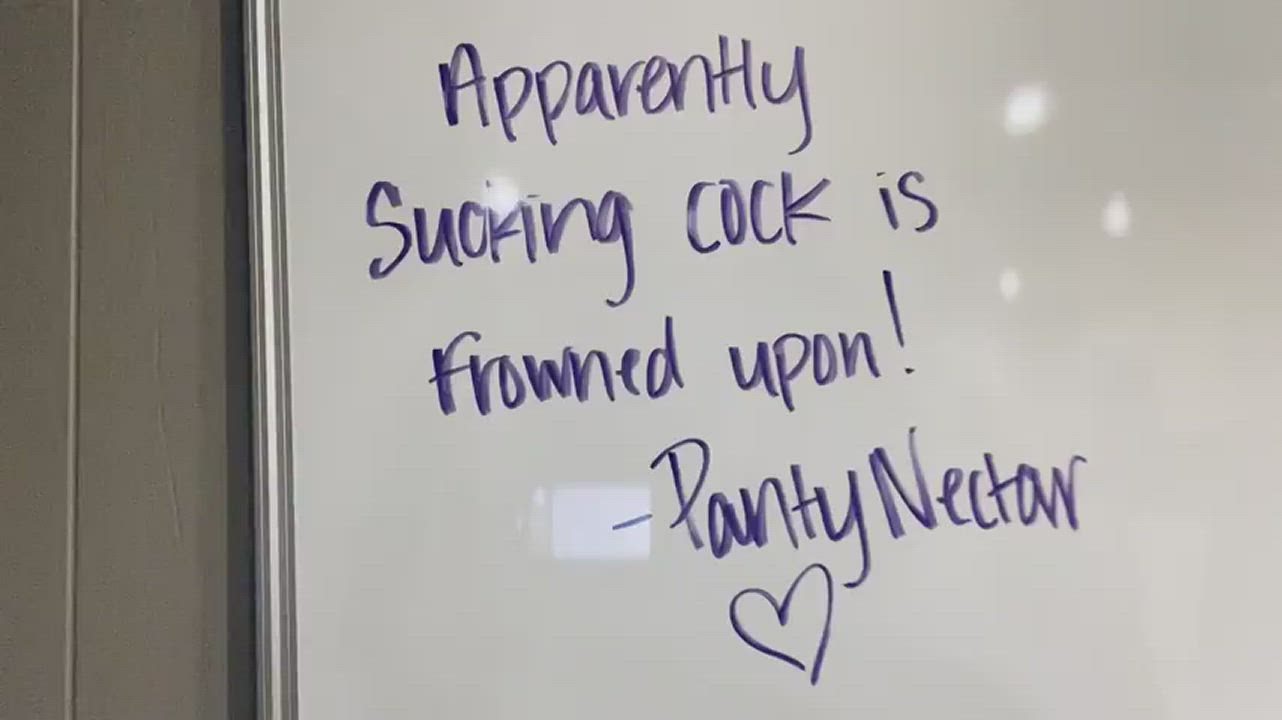 Apparently
Sucking cock is
frowned upon!
- PantyNectar